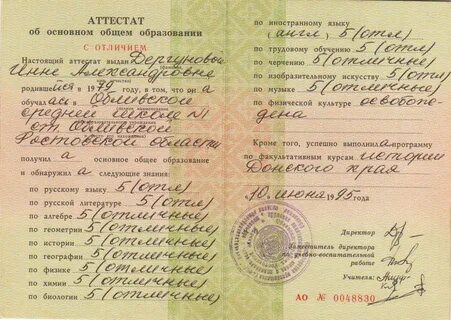 АТТЕСТАТ
об основном общем образовании
С ОТЛИЧИЕМ
Настоящий аттестат выдан Дергуновой
Инне Александровне
родившейся в 1979 году, в том, что он а
обучалась в Обливской
средней школе №1
ст. Обливской
Ростовской области
получил а основное общее образование
и обнаружил а следующие знания:
по русскому языку 5 (отл)
по русской литературе 5 (отл)
по алгебре 5 (отличные)
по геометрии 5 (отличные)
по истории 5 (отличные)
по географии 5 (отличные)
по физике 5 (отличные)
по химии 5 (отличные)
по биологии 5 (отличные)
по иностранному языку
(англ) 5 (отл)
по трудовому обучению 5 (отл)
по черчению 5 (отличные)
по изобразительному искусству 5 (отл)
по музыке 5 (отличные)
по физической культуре освобож-
дена
Кроме того, успешно выполнил а программу
по факультативным курсам истории
Донского края
10 июня 1995 года
Директор
Заместитель директора
по учебно-воспитательной
работе
Учителя:
АО № 0048830